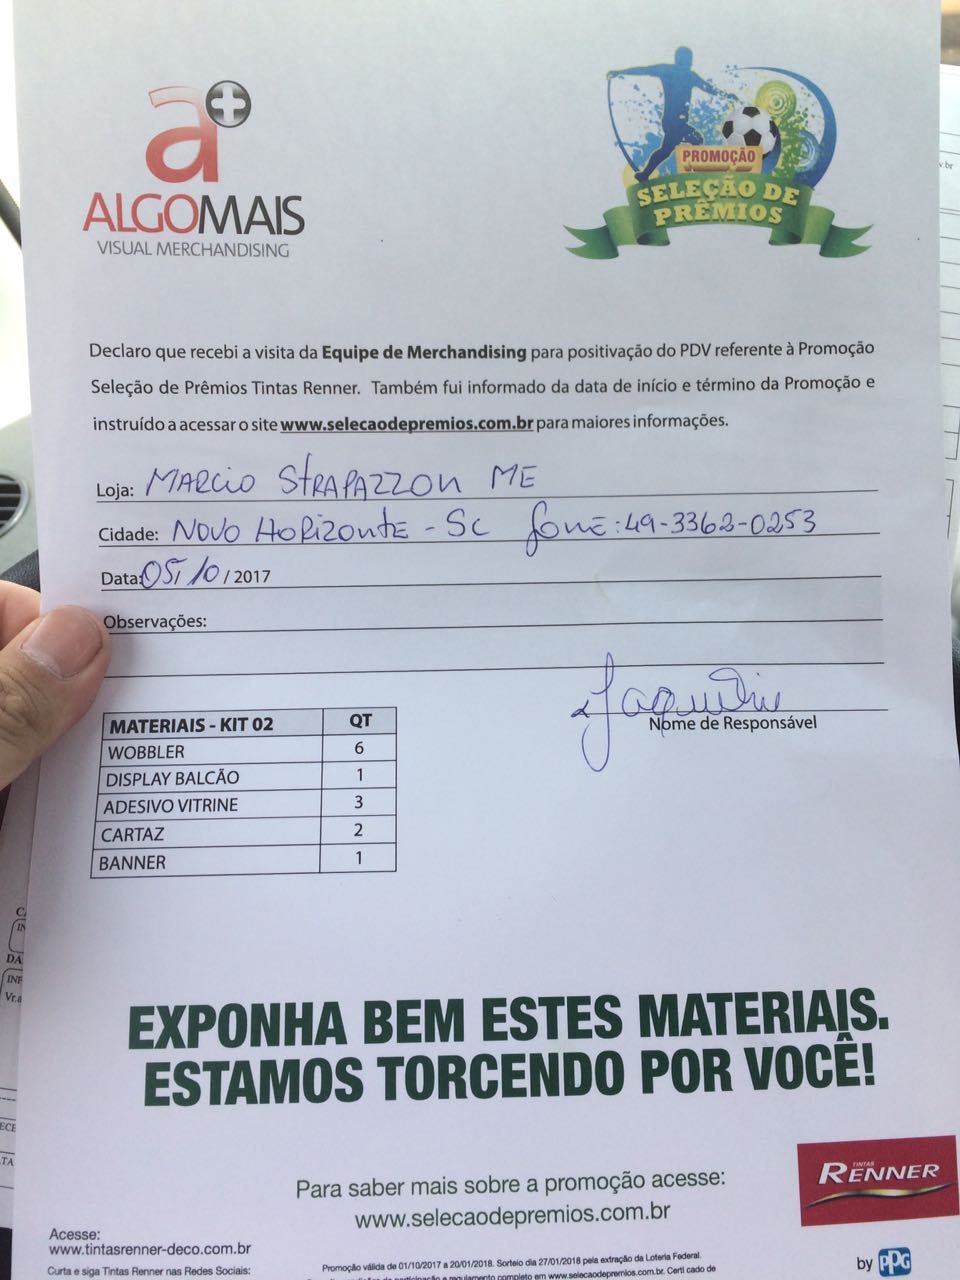 a+
ALGOMAIS
VISUAL MERCHANDISING
PROMOÇÃO
SELEÇÃO DE
PRÊMIOS
Declaro que recebi a visita da Equipe de Merchandising para positivação do PDV referente à Promoção
Seleção de Prêmios Tintas Renner. Também fui informado da data de início e término da Promoção e
instruído a acessar o site www.selecaodepremios.com.br para maiores informações.
Loja: MARCIO STRAPAZZON ME
Cidade: NOVO HORIZONTE - SC fone: 49-3362-0253
Data: 05/10/2017
Observações:
Jaqueline
Nome de Responsável
MATERIAIS - KIT 02 QT
WOBBLER 6
DISPLAY BALCÃO 1
ADESIVO VITRINE 3
CARTAZ 2
BANNER 1
EXPONHA BEM ESTES MATERIAIS.
ESTAMOS TORCENDO POR VOCÊ!
TINTAS
RENNER
Para saber mais sobre a promoção acesse:
www.selecaodepremios.com.br
Acesse:
www.tintasrenner-deco.com.br
by PPG
Curta e siga Tintas Renner nas Redes Sociais:
Promoção válida de 01/10/2017 a 20/01/2018. Sorteio dia 27/01/2018 pela extração da Loteria Federal.
regulamento completo em www.selecaodepremios.com.br. Certificado de